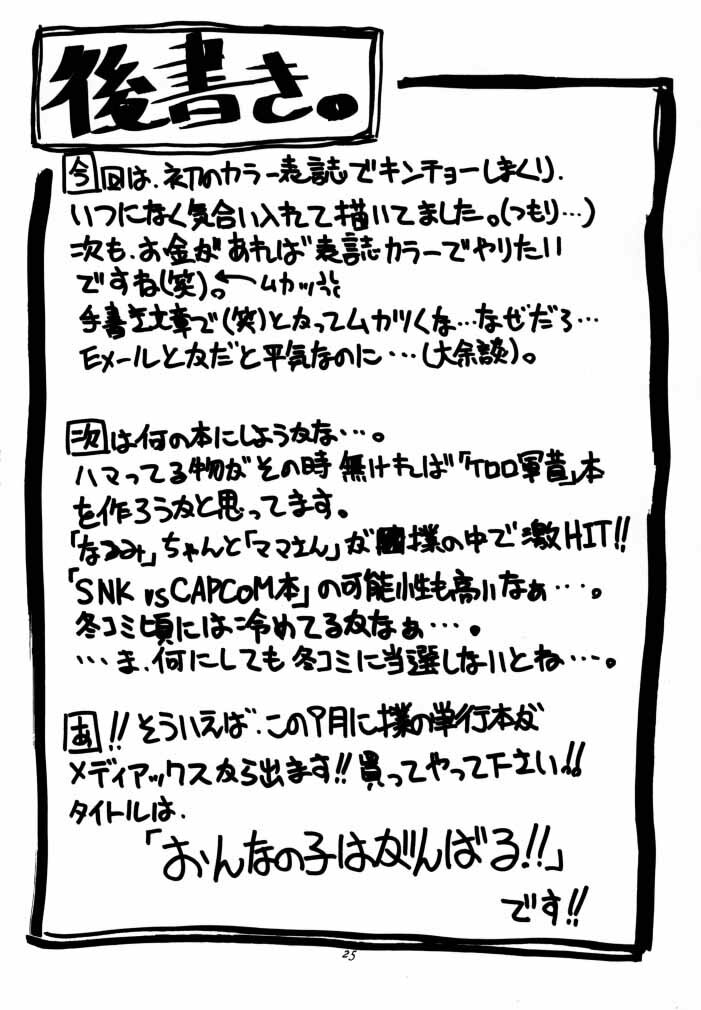 後書き。
今回は、初のカラー表誌でキンチョーしまくり、
いつになく気合い入れて描いてました。(つもり…)
次も、お金があれば表誌カラーでやりたい
ですね(笑)。←ムカッ
手書き文章で(笑)となってムカツくな…なぜだろ…
Eメールとかだと平気なのに…(大余談)。
次は何の本にしようかな…。
ハマってる物がその時無ければ「ケロロ軍曹」本
を作ろうかと思ってます。
「なるみ」ちゃんと「ママさん」が僕の中で激HIT!!
「SNK vs CAPCOM本」の可能性も高いなぁ…。
冬コミ頃には冷めてるかなぁ…。
…ま、何にしても冬コミに当選しないとね…。
あ!!そういえば、この9月に僕の単行本が
メディアックスから出ます!!買ってやって下さい!!
タイトルは、
「おんなの子はがんばる!!」
です!!
25